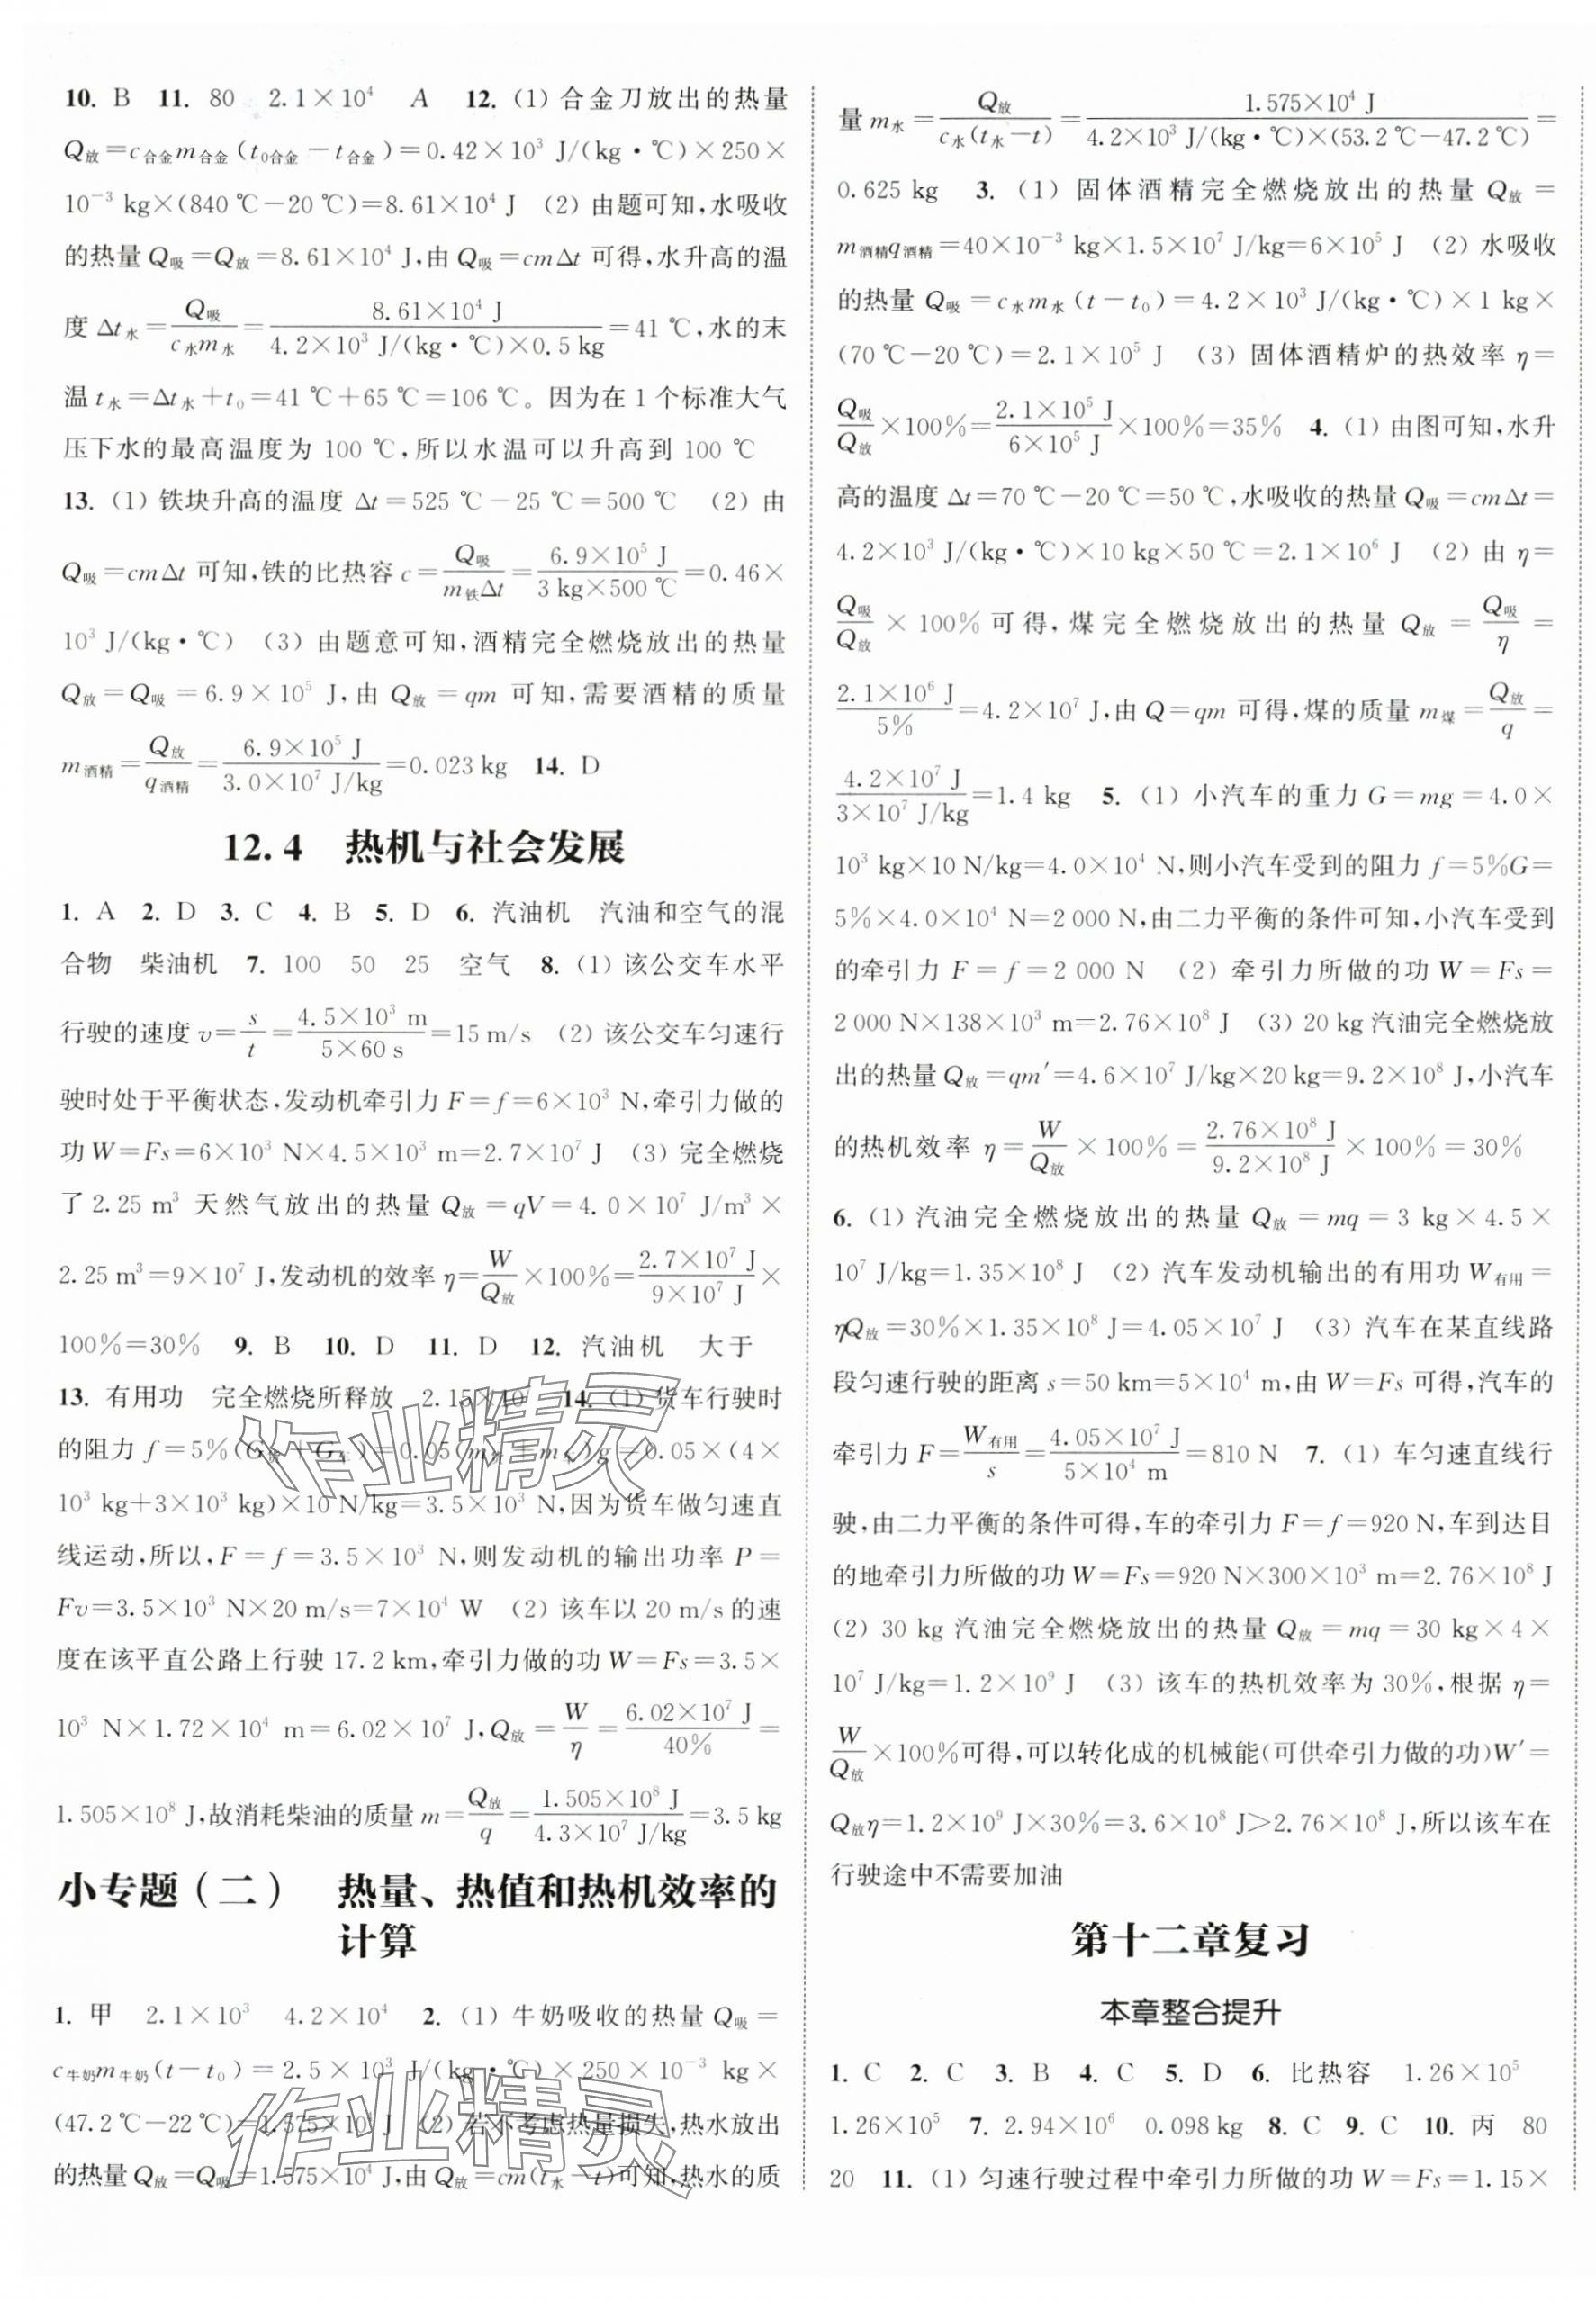 10. B 11. 80 2.1×10⁴ A 12. (1) 合金刀放出的热量
Q放=c合金m合金(t₀合金-t合金)=0.42×10³ J/(kg·℃)×250×
10⁻³ kg×(840 ℃-20 ℃)=8.61×10⁴ J (2) 由题可知,水吸收
的热量 Q吸=Q放=8.61×10⁴ J,由 Q吸=cmΔt 可得,水升高的温
度 Δt水=Q吸/c水m水=8.61×10⁴ J/4.2×10³ J/(kg·℃)×0.5 kg=41 ℃,水的末
温 t水=Δt水+t₀=41 ℃+65 ℃=106 ℃。因为在 1 个标准大气
压下水的最高温度为 100 ℃,所以水温可以升高到 100 ℃
13. (1) 铁块升高的温度 Δt=525 ℃-25 ℃=500 ℃ (2) 由
Q吸=cmΔt 可知,铁的比热容 c=Q吸/m铁Δt=6.9×10⁵ J/3 kg×500 ℃=0.46×
10³ J/(kg·℃) (3) 由题意可知,酒精完全燃烧放出的热量
Q放=Q吸=6.9×10⁵ J,由 Q放=qm 可知,需要酒精的质量
m酒精=Q放/q酒精=6.9×10⁵ J/3.0×10⁷ J/kg=0.023 kg 14. D
12.4 热机与社会发展
1. A 2. D 3. C 4. B 5. D 6. 汽油机 汽油和空气的混
合物 柴油机 7. 100 50 25 空气 8. (1) 该公交车水平
行驶的速度 v=s/t=4.5×10³ m/5×60 s=15 m/s (2) 该公交车匀速行
驶时处于平衡状态,发动机牵引力 F=f=6×10³ N,牵引力做的
功 W=Fs=6×10³ N×4.5×10³ m=2.7×10⁷ J (3) 完全燃烧
了 2.25 m³ 天然气放出的热量 Q放=qV=4.0×10⁷ J/m³×
2.25 m³=9×10⁷ J,发动机的效率 η=W/Q放×100%=2.7×10⁷ J/9×10⁷ J×
100%=30% 9. B 10. D 11. D 12. 汽油机 大于
13. 有用功 完全燃烧所释放 2.15×10 14. (1) 货车行驶时
的阻力 f=5%(G+G车)=0.05(m+m)g=0.05×(4×
10³ kg+3×10³ kg)×10 N/kg=3.5×10³ N,因为货车做匀速直
线运动,所以,F=f=3.5×10³ N,则发动机的输出功率 P=
Fv=3.5×10³ N×20 m/s=7×10⁴ W (2) 该车以 20 m/s 的速
度在该平直公路上行驶 17.2 km,牵引力做的功 W=Fs=3.5×
10³ N×1.72×10⁴ m=6.02×10⁷ J,Q放=W/η=6.02×10⁷ J/40%=
1.505×10⁸ J,故消耗柴油的质量 m=Q放/q=1.505×10⁸ J/4.3×10⁷ J/kg=3.5 kg
小专题(二) 热量、热值和热机效率的
计算
1. 甲 2.1×10³ 4.2×10⁴ 2. (1) 牛奶吸收的热量 Q吸=
c牛奶m牛奶(t-t₀)=2.5×10³ J/(kg·℃)×250×10⁻³ kg×
(47.2 ℃-22 ℃)=1.575×10⁴ J (2) 若不考虑热量损失,热水放出
的热量 Q放=Q吸=1.575×10⁴ J,由 Q放=cm(t水-t)可知,热水的质
量 m水=Q放/c水(t水-t)=1.575×10⁴ J/4.2×10³ J/(kg·℃)×(53.2 ℃-47.2 ℃)=
0.625 kg 3. (1) 固体酒精完全燃烧放出的热量 Q放=
m酒精q酒精=40×10⁻³ kg×1.5×10⁷ J/kg=6×10⁵ J (2) 水吸收
的热量 Q吸=c水m水(t-t₀)=4.2×10³ J/(kg·℃)×1 kg×
(70 ℃-20 ℃)=2.1×10⁵ J (3) 固体酒精炉的热效率 η=
Q吸/Q放×100%=2.1×10⁵ J/6×10⁵ J×100%=35% 4. (1) 由图可知,水升
高的温度 Δt=70 ℃-20 ℃=50 ℃,水吸收的热量 Q吸=cmΔt=
4.2×10³ J/(kg·℃)×10 kg×50 ℃=2.1×10⁶ J (2) 由 η=
Q吸/Q放×100%可得,煤完全燃烧放出的热量 Q放=Q吸/η=
2.1×10⁶ J/5%=4.2×10⁷ J,由 Q=qm 可得,煤的质量 m煤=Q放/q=
4.2×10⁷ J/3×10⁷ J/kg=1.4 kg 5. (1) 小汽车的重力 G=mg=4.0×
10³ kg×10 N/kg=4.0×10⁴ N,则小汽车受到的阻力 f=5%G=
5%×4.0×10⁴ N=2 000 N,由二力平衡的条件可知,小汽车受到
的牵引力 F=f=2 000 N (2) 牵引力所做的功 W=Fs=
2 000 N×138×10³ m=2.76×10⁸ J (3) 20 kg 汽油完全燃烧放
出的热量 Q放=qm′=4.6×10⁷ J/kg×20 kg=9.2×10⁸ J,小汽车
的热机效率 η=W/Q放×100%=2.76×10⁸ J/9.2×10⁸ J×100%=30%
6. (1) 汽油完全燃烧放出的热量 Q放=mq=3 kg×4.5×
10⁷ J/kg=1.35×10⁸ J (2) 汽车发动机输出的有用功 W有用=
ηQ放=30%×1.35×10⁸ J=4.05×10⁷ J (3) 汽车在某直线路
段匀速行驶的距离 s=50 km=5×10⁴ m,由 W=Fs 可得,汽车的
牵引力 F=W有用/s=4.05×10⁷ J/5×10⁴ m=810 N 7. (1) 车匀速直线行
驶,由二力平衡的条件可得,车的牵引力 F=f=920 N,车到达目
的地牵引力所做的功 W=Fs=920 N×300×10³ m=2.76×10⁸ J
(2) 30 kg 汽油完全燃烧放出的热量 Q放=mq=30 kg×4×
10⁷ J/kg=1.2×10⁹ J (3) 该车的热机效率为 30%,根据 η=
W/Q放×100%可得,可以转化成的机械能(可供牵引力做的功)W′=
Q放η=1.2×10⁹ J×30%=3.6×10⁸ J>2.76×10⁸ J,所以该车在
行驶途中不需要加油
第十二章复习
本章整合提升
1. C 2. C 3. B 4. C 5. D 6. 比热容 1.26×10⁵
1.26×10⁵ 7. 2.94×10⁶ 0.098 kg 8. C 9. C 10. 丙 80
20 11. (1) 匀速行驶过程中牵引力所做的功 W=Fs=1.15×
作业精灵
作业精灵